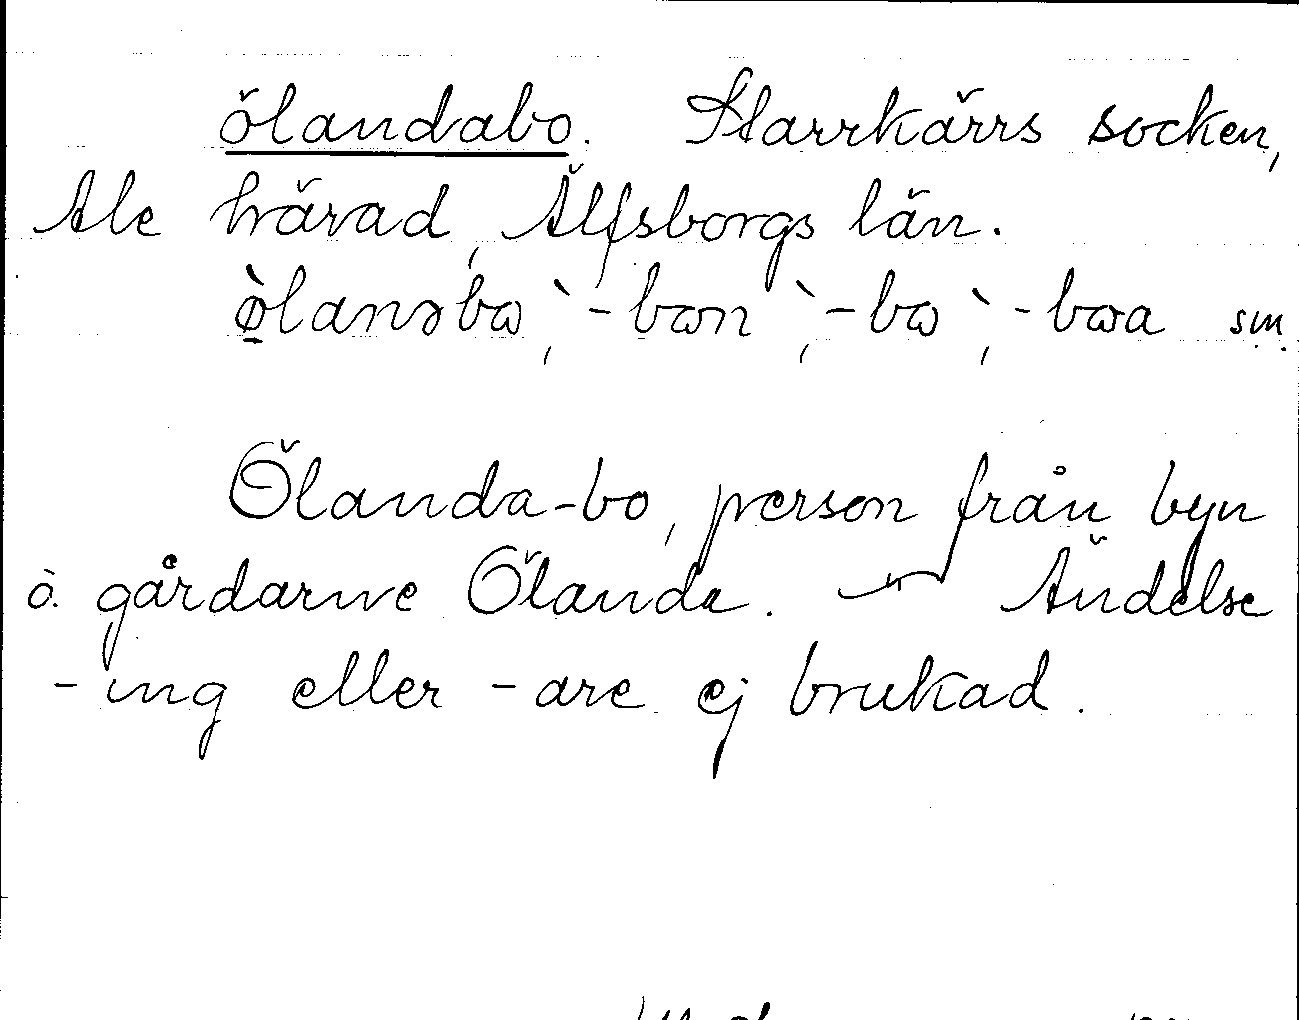 ölandabo. Starrkärrs socken,
Ale härad, Älfsborgs län.
-bon -bo -boa sm.
Ölanda-bo, person från byn
o. gårdarne Ölanda. Ändelse
-ing eller -are ej brukad.